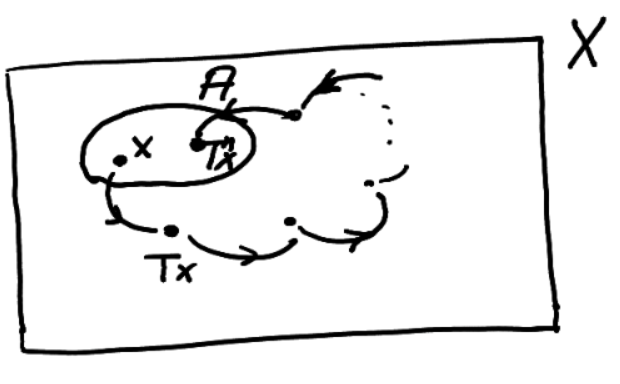 X
A
x
Tⁿx
Tx